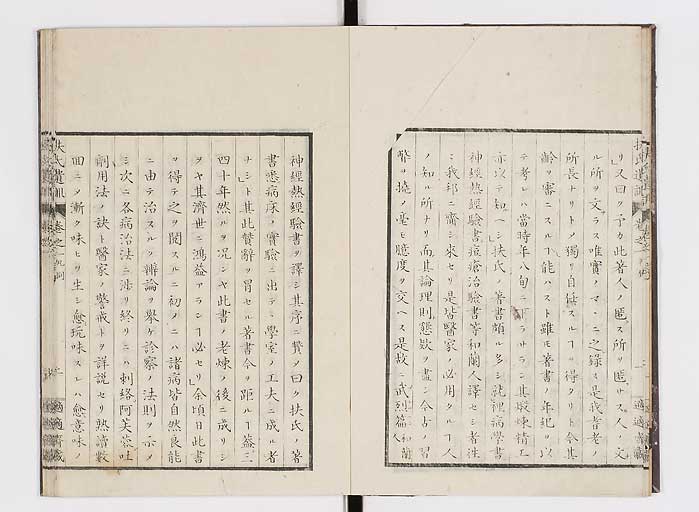 リ又曰ク予カ此著人ノ匿ス所ヲ匿サス人ノ文
ル所ヲ文ラス唯實ノマヽニ之録ス是我耆老ノ
所長ナリトノ獨リ自任スルヿヲ得タリト今其
齡ヲ審ニスルヿ能ハスト雖モ著書ノ年紀ヲ以
テ考レハ當時年八旬ニ下ラサラン其鍛煉精工
亦以テ知ヘシ扶氏ノ著書頗ル多シ就裡病學書
神經熱經驗書痘瘡治驗書等和蘭人譯セシ者徃
ミ我邦ニ齎シ來セリ是皆醫家ノ必用タルヿ人
ノ知ル所ナリ而其論理則懇欵ヲ盡シ今古ノ習
弊ヲ撓ノ毫モ臆度ヲ交ヘス是故ニ武烈篇和蘭
神經熱經驗書ヲ譯シ其序ニ賛ノ曰ク扶氏ノ著
書悉病床ノ實驗ニ出テシ學室ノ工夫ニ成ル者
ナシト其此賛辭ヲ冒セル著書今ヲ距ルヿ蓋三
四十年然ルヲ況シヤ此書ノ老煉ノ後ニ成リシ
ヲヤ其濟世ニ鴻益アランヿ必セリ余頃日此書
ヲ得テ之ヲ閲スルニ初ノニハ諸病皆自然良能
ニ由テ治スルヲ辨論ヲ擧ケ診察ノ法則ヲ示ノ
三次ニ各病治法ニ涉リ終リニハ刺絡阿芙蓉吐
劑用法ノ訣ト醫家ノ警戒トヲ詳説セリ熟讀數
囬ニノ漸ク味ヒヲ生シ愈玩味スレハ愈意味ノ
扶氏遺訓
卷之一
凡例
適適齋藏